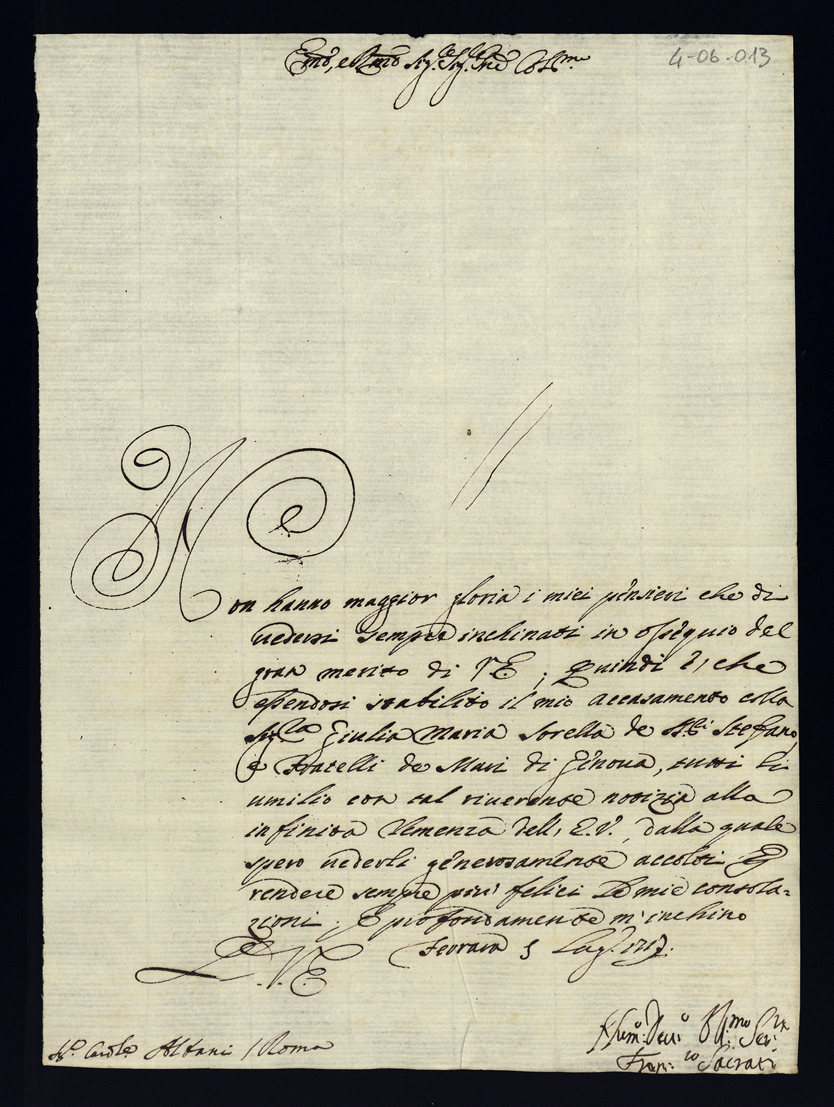 Emo, e Rmo Sig.re Sig.re Pne Colmo
4-06-013
Non hanno maggior gloria i miei pensieri che di
uedersi sempre inchinati in ossequio del
gran merito di V E; Quindi è, che
essendosi stabilito il mio accasamento colla
Sig.ra Giulia Maria sorella de SS.ri Stefano,
e Fratelli de Mari di Genoua, tutti li
umilio con tal riuerente notizia alla
infinita Clemenza dell' E.V., dalla quale
spero uederli generosamente accolti
rendere sempre piu' felici le mie consola=
zioni. E profondamente m'inchino
D. V. E
Ferrara 5 Lug.o 1717.
Hum.o Deu.o Obl.mo Ser.re
Fran.co Sacrati
Albani / Roma